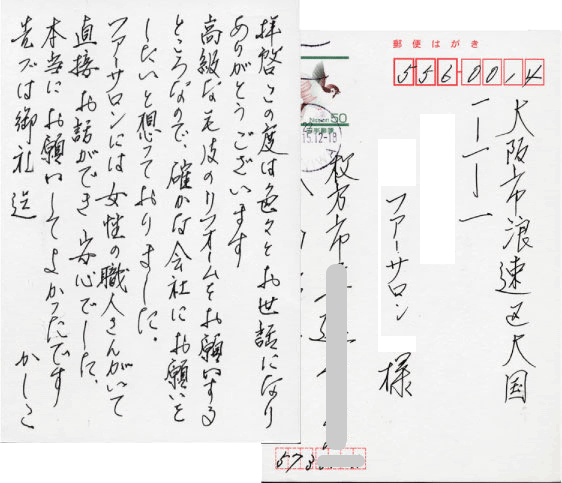 拝啓 この度は色々とお世話になり
ありがとうございます
高級な毛皮のリフォームをお願いする
ところなので、確かな会社にお願いを
したいと想っておりました。
ファーサロンには女性の職人さんがいて
直接お話ができ安心でした。
本当にお願いしてよかったです
先ズは御礼 迄
かしこ
郵便はがき
556-0014
大阪市浪速区大国
一ー一ー一
ファーサロン 様
50
15.12-18
枚方市
573